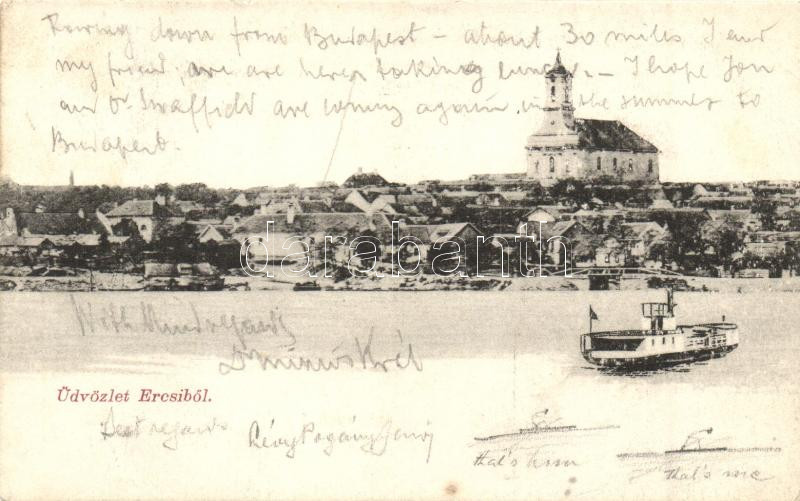 Rowing down from Budapest - about 30 miles I and
my friend, are are here taking lunch. - I hope you
and Dr. Swaffield are coming again in the summer to
Budapest.
darabanth
With kind regards
Üdvözlet Ercsiből.
Best regards
that's him
that's me